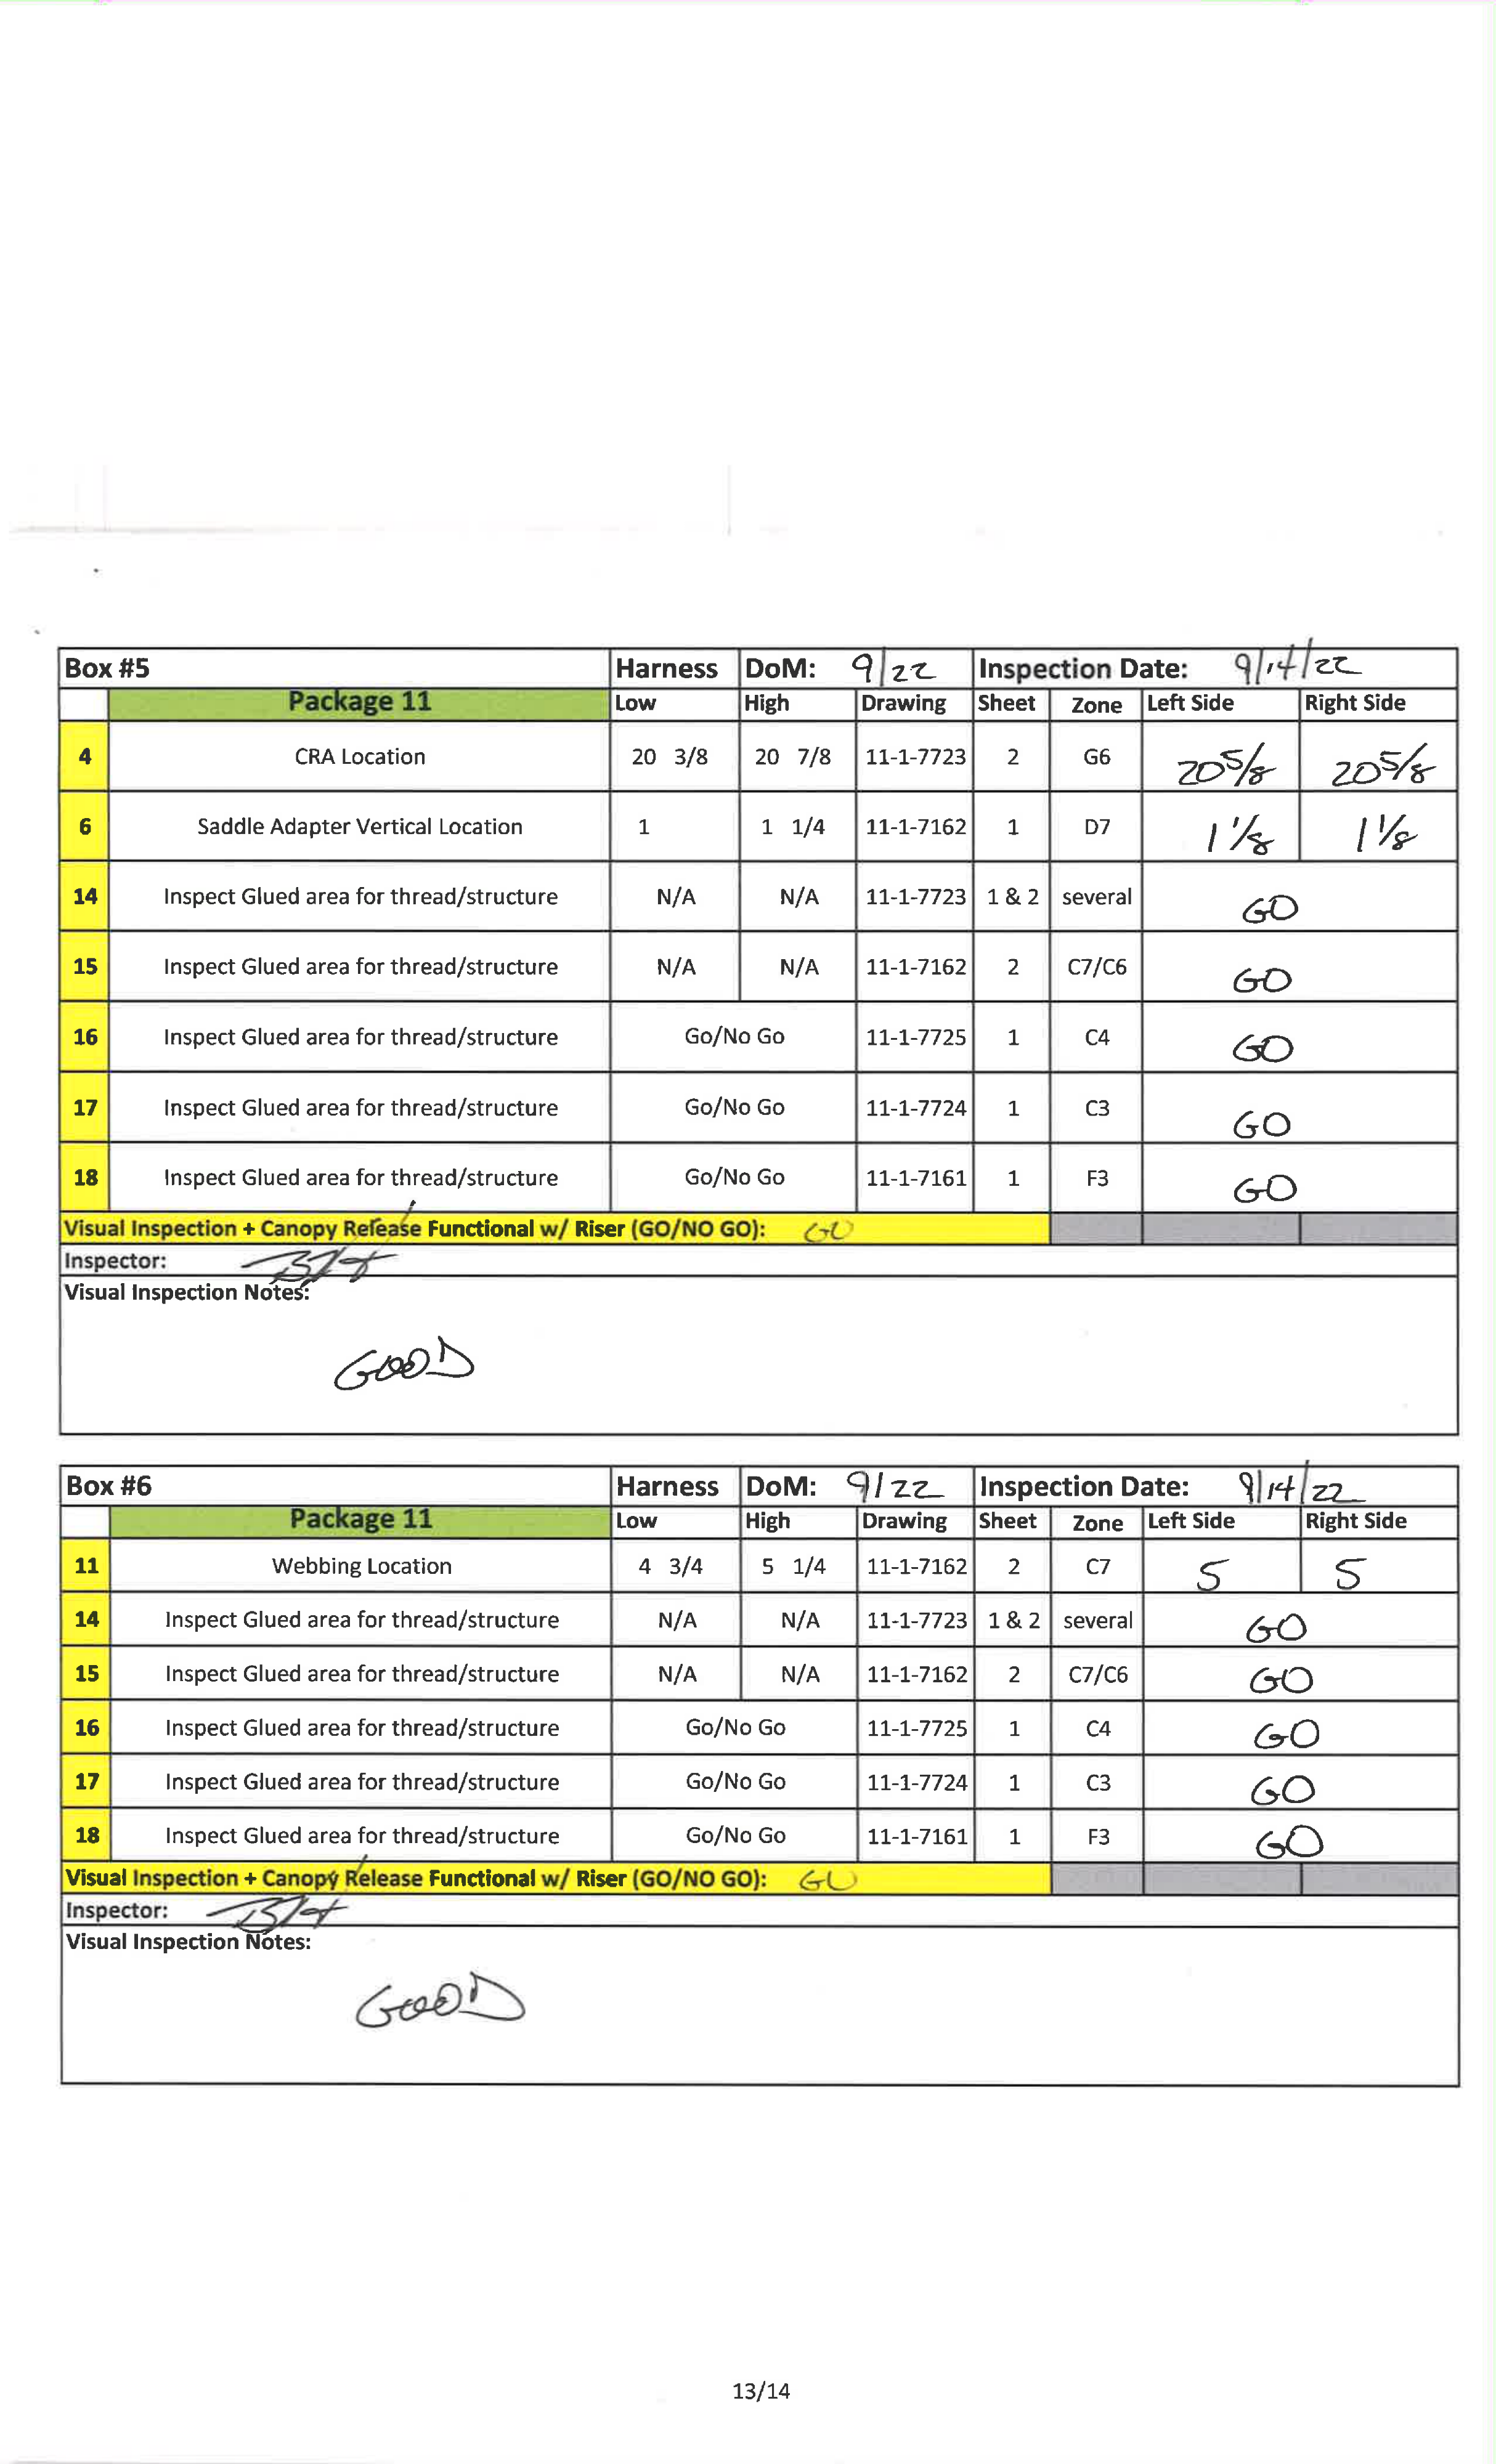 Box #5 Harness DoM: 9/22 Inspection Date: 9/14/22
Package 11 Low High Drawing Sheet Zone Left Side Right Side
4 CRA Location 20 3/8 20 7/8 11-1-7723 2 G6 20 5/8 20 5/8
6 Saddle Adapter Vertical Location 1 1 1/4 11-1-7162 1 D7 1 1/8 1 1/8
14 Inspect Glued area for thread/structure N/A N/A 11-1-7723 1 & 2 several GO
15 Inspect Glued area for thread/structure N/A N/A 11-1-7162 2 C7/C6 GO
16 Inspect Glued area for thread/structure Go/No Go 11-1-7725 1 C4 GO
17 Inspect Glued area for thread/structure Go/No Go 11-1-7724 1 C3 GO
18 Inspect Glued area for thread/structure Go/No Go 11-1-7161 1 F3 GO
Visual Inspection + Canopy Release Functional w/ Riser (GO/NO GO): GO
Inspector:
Visual Inspection Notes:
GOOD
Box #6 Harness DoM: 9/22 Inspection Date: 9/14/22
Package 11 Low High Drawing Sheet Zone Left Side Right Side
11 Webbing Location 4 3/4 5 1/4 11-1-7162 2 C7 5 5
14 Inspect Glued area for thread/structure N/A N/A 11-1-7723 1 & 2 several GO
15 Inspect Glued area for thread/structure N/A N/A 11-1-7162 2 C7/C6 GO
16 Inspect Glued area for thread/structure Go/No Go 11-1-7725 1 C4 GO
17 Inspect Glued area for thread/structure Go/No Go 11-1-7724 1 C3 GO
18 Inspect Glued area for thread/structure Go/No Go 11-1-7161 1 F3 GO
Visual Inspection + Canopy Release Functional w/ Riser (GO/NO GO): GO
Inspector:
Visual Inspection Notes:
GOOD
13/14